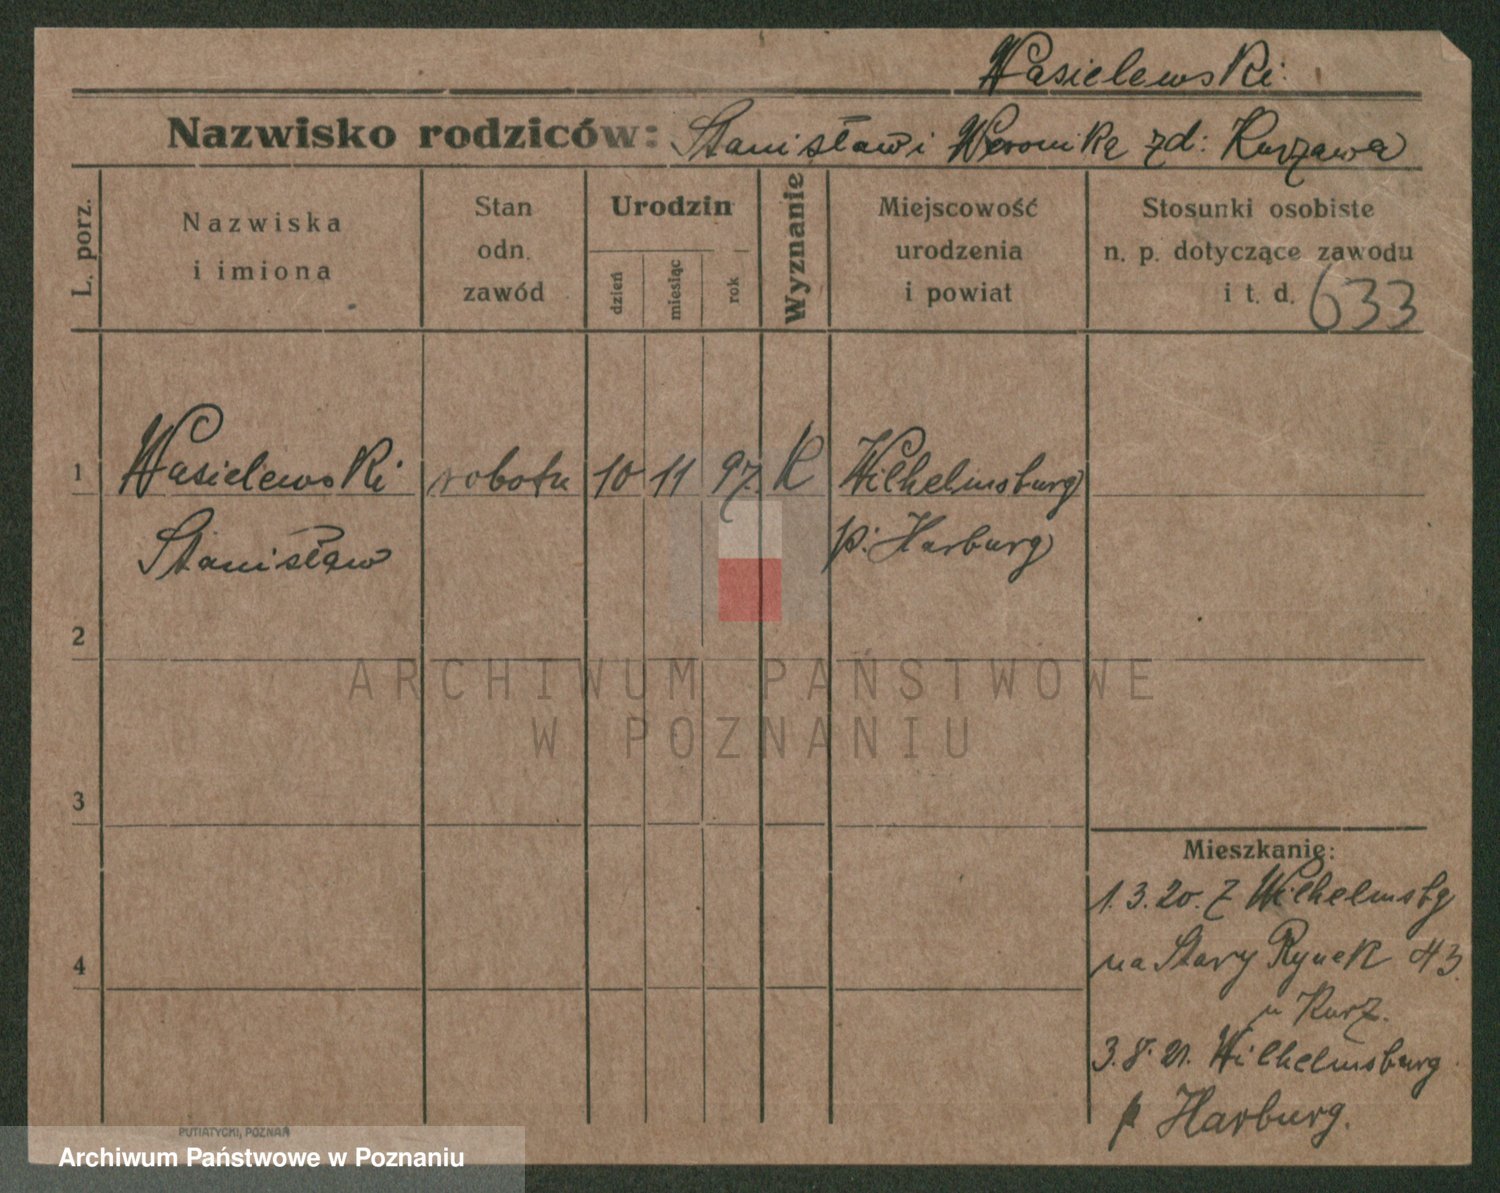 Wasielewski
Nazwisko rodziców: Stanisław i Weronika zd: Kurzawa
L. porz.
Nazwiska
i imiona
Stan
odn.
zawód
Urodzin
dzień
miesiąc
rok
Wyznanie
Miejscowość
urodzenia
i powiat
Stosunki osobiste
n. p. dotyczące zawodu
i t. d. 633
1 Wasielewski robotn 10 11 97. K Wilhelmsburg
Stanisław p. Harburg
2
ARCHIWUM PAŃSTWOWE
W POZNANIU
3
4
Mieszkanie:
1.3.20. z Wilhelmsbg
na Stary Rynek 43
u Kurz.
3.8.21. Wilhelmsburg
p Harburg.
PUTIATYCKI, POZNAŃ
Archiwum Państwowe w Poznaniu